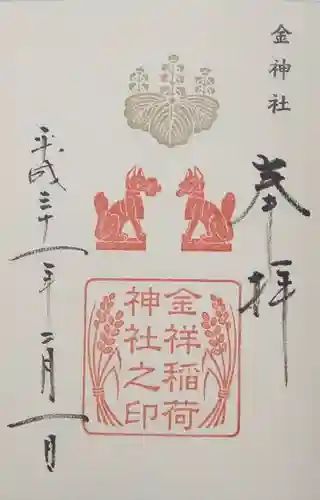 金神社
奉拝
金祥稲荷
神社之印
平成三十一年二月一日